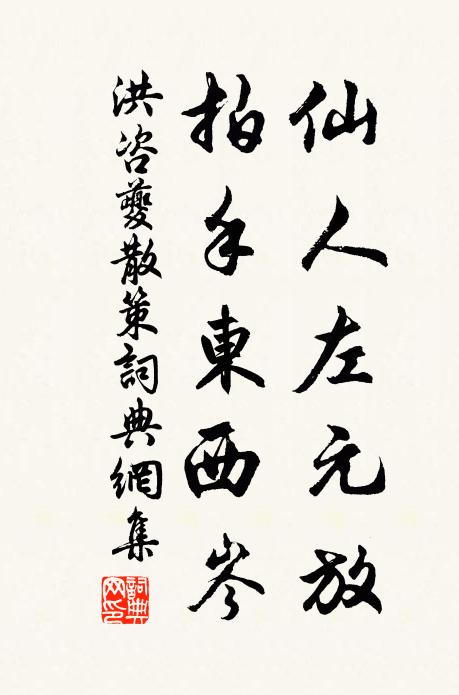 仙人左元放
拍手東西岑
洪咨夔散策詞典網集
詞典网印